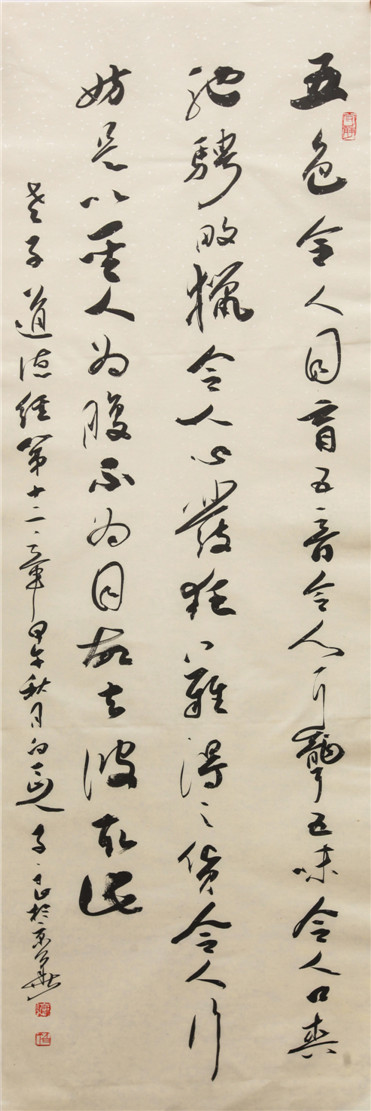 五色令人目盲五音令人耳聾五味令人口爽
馳騁畋獵令人心發狂難得之貨令人行
妨是以聖人為腹不為目故去彼取此
老子道德經第十二章甲午秋月於京華